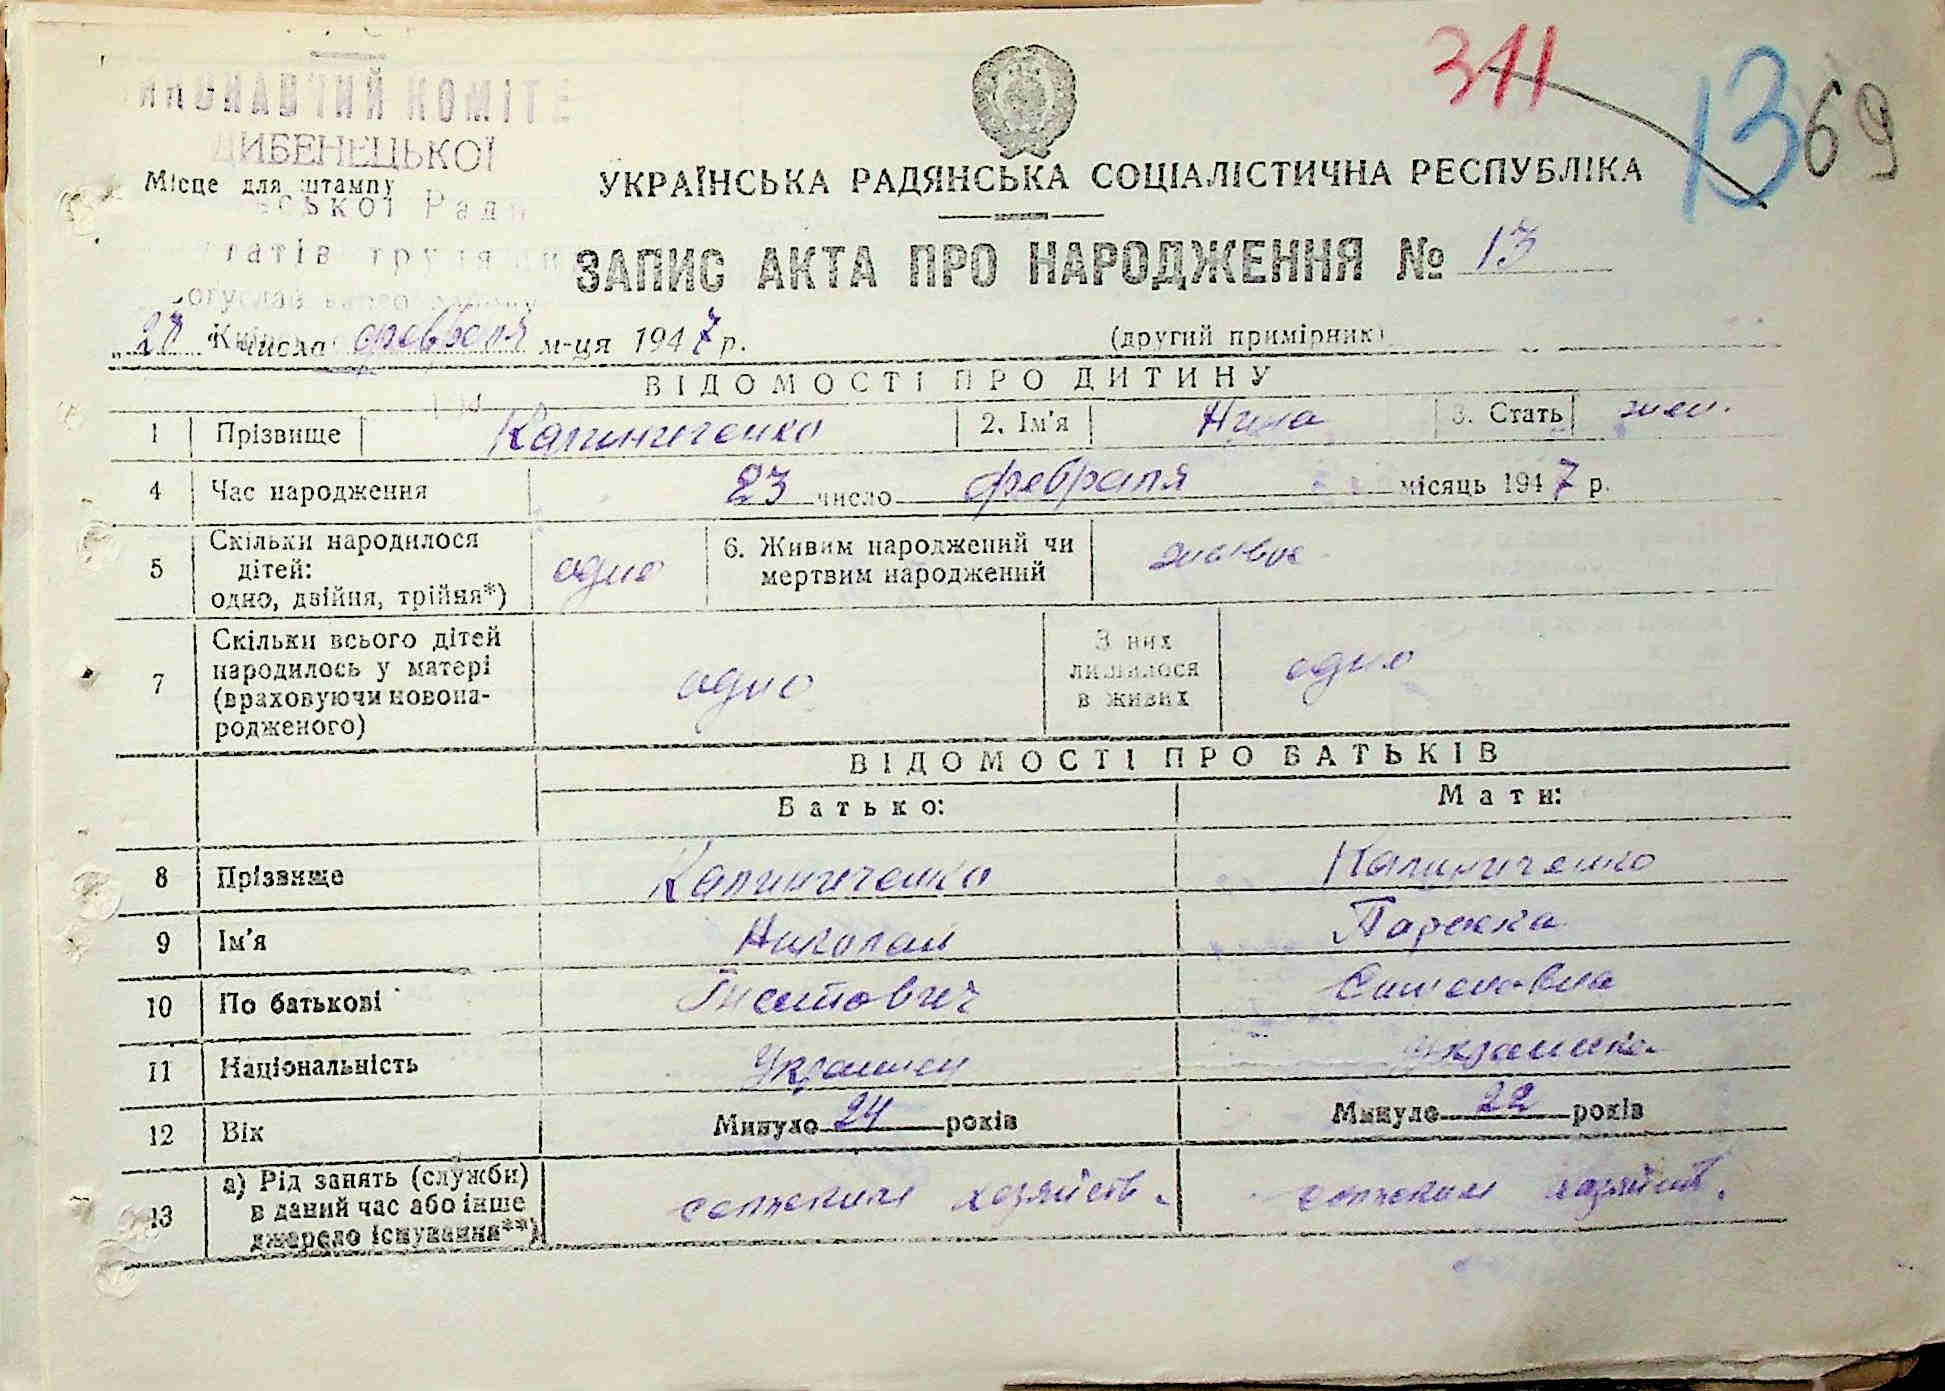 341
13
69
ВИКОНАВЧИЙ КОМІТЕ
ДИБЕНЕЦЬКОЇ
Місце для штампу
ської Ради
татів трудящи
Богуславського району
УКРАЇНСЬКА РАДЯНСЬКА СОЦІАЛІСТИЧНА РЕСПУБЛІКА
ЗАПИС АКТА ПРО НАРОДЖЕННЯ № 13
числа февраля м-ця 1947 р.
(другий примірник)
ВІДОМОСТІ ПРО ДИТИНУ
1 Прізвище Калиниченко 2. Ім'я Нина 3. Стать жен.
4 Час народження 23 число февраля місяць 1947 р.
5 Скільки народилося дітей: одно, двійня, трійня*) одно 6. Живим народжений чи мертвим народжений живое
7 Скільки всього дітей народилось у матері (враховуючи новона-родженого) одно З них лишилося в живих одно
ВІДОМОСТІ ПРО БАТЬКІВ
Батько: Мати:
8 Прізвище Калиниченко Калиниченко
9 Ім'я Николай Параска
10 По батькові Титович Симоновна
11 Національність Украинец Украинка
12 Вік Минуло 24 років Минуло 22 років
13 а) Рід занять (служби) в даний час або інше джерело існування**) сельским хозяйств. сельским хозяйств.